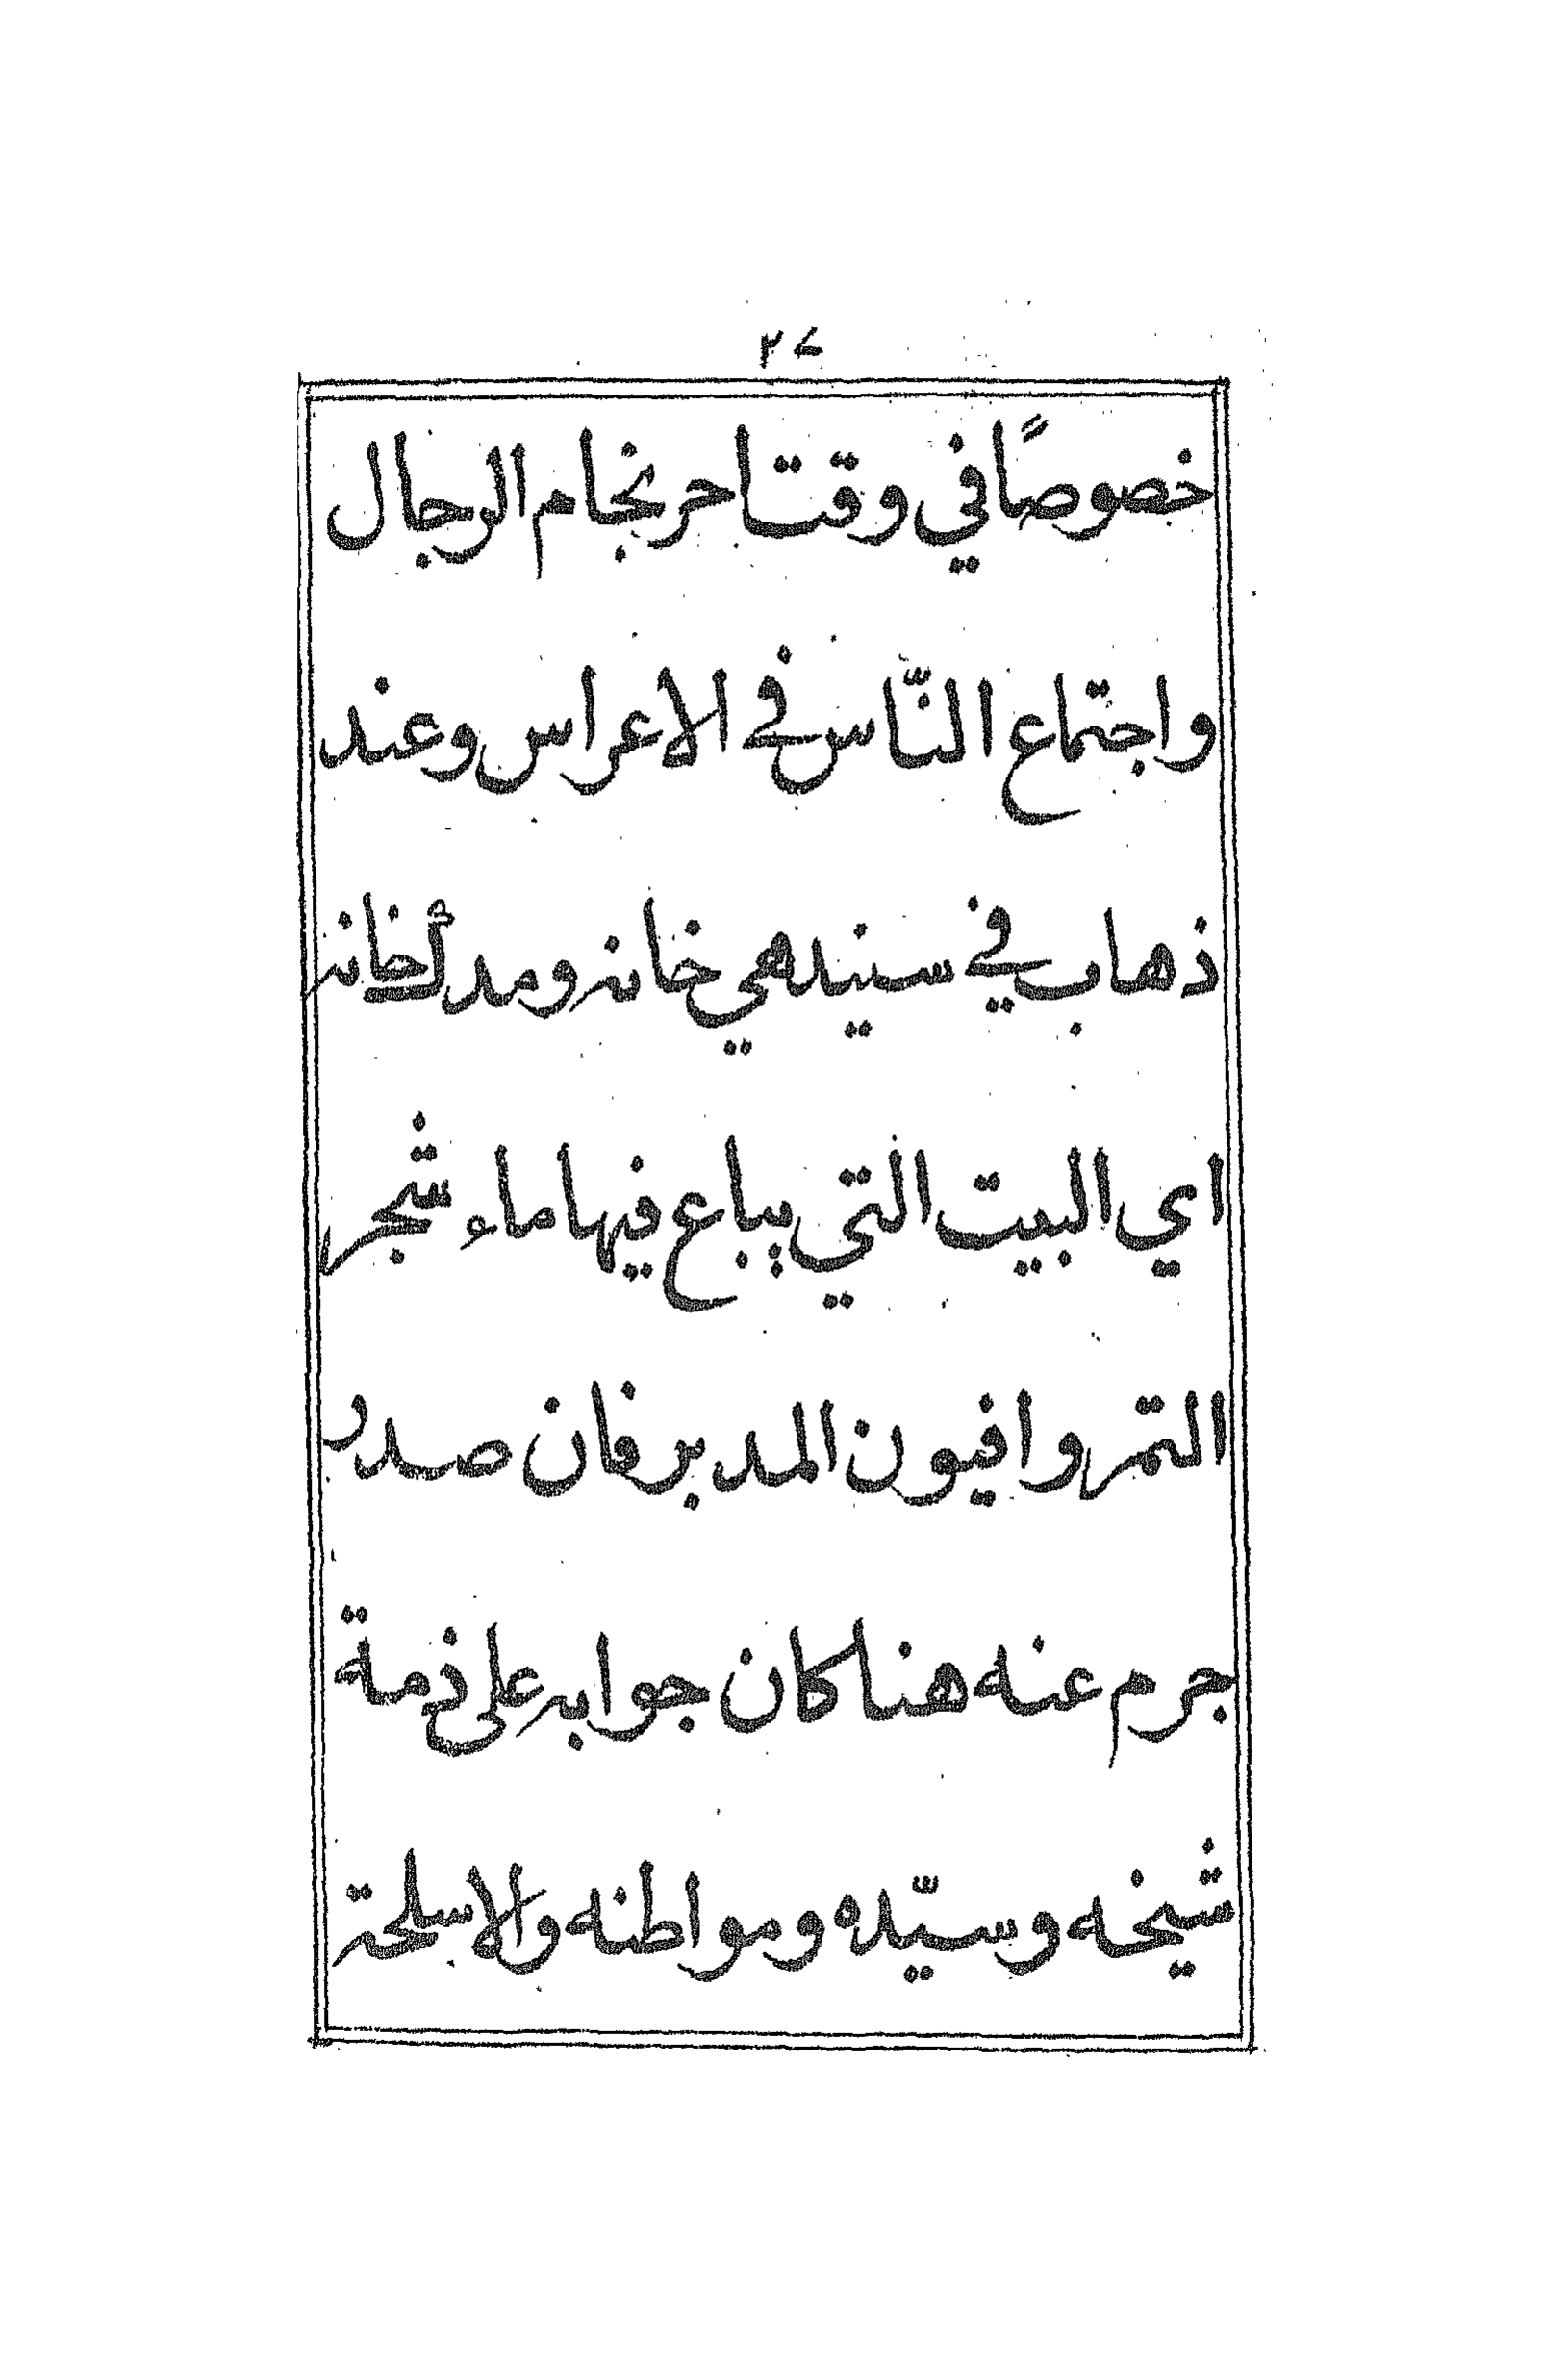 ٢٧
خصوصًا في وقت احرنجام الرجال
واجتماع النّاس في الاعراس وعند
ذهاب في سيندهي خانه ومدك خانه
اي البيت التي يباع فيها ماء شجر
التمر وافيون المدبر فان صدر
جرم عنه هنا كان جوابه على ذمة
شيخه وسيّده ومواطنه والاسلحة